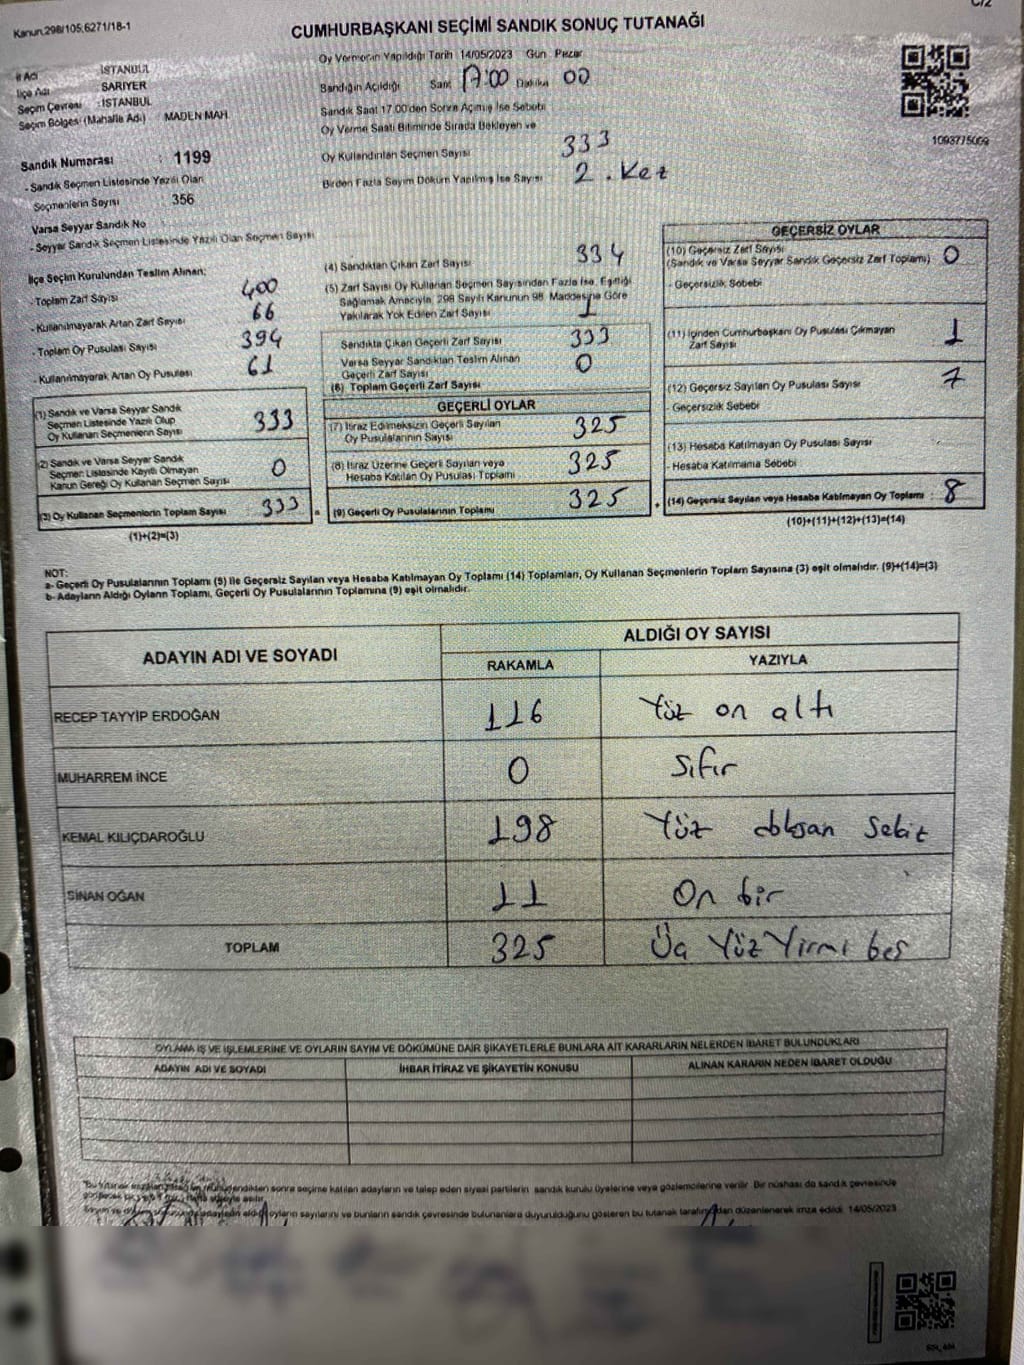 Kanun,298/105,6271/18-1
C/2
CUMHURBAŞKANI SEÇİMİ SANDIK SONUÇ TUTANAĞI
İl Adı : İSTANBUL
İlçe Adı : SARIYER
Seçim Çevresi : İSTANBUL
Seçim Bölgesi (Mahalle Adı) : MADEN MAH.
Sandık Numarası : 1199
- Sandık Seçmen Listesinde Yazılı Olan
Seçmenlerin Sayısı : 356
Varsa Seyyar Sandık No
- Seyyar Sandık Seçmen Listesinde Yazılı Olan Seçmen Sayısı
Oy Vermenin Yapıldığı Tarih 14/05/2023 Gün Pazar
Sandığın Açıldığı Saat 17:00 Dakika 00
Sandık Saat 17.00'den Sonra Açılmış İse Sebebi
Oy Verme Saati Bitiminde Sırada Bekleyen ve
Oy Kullandırılan Seçmen Sayısı 333
Birden Fazla Sayım Döküm Yapılmış İse Sayısı : 2. Kez
1093775009
İlçe Seçim Kurulundan Teslim Alınan;
- Toplam Zarf Sayısı 400
- Kullanılmayarak Artan Zarf Sayısı 66
- Toplam Oy Pusulası Sayısı 394
- Kullanılmayarak Artan Oy Pusulası 61
(1) Sandık ve Varsa Seyyar Sandık
Seçmen Listesinde Yazılı Olup
Oy Kullanan Seçmenlerin Sayısı 333
(2) Sandık ve Varsa Seyyar Sandık
Seçmen Listesinde Kayıtlı Olmayan
Kanun Gereği Oy Kullanan Seçmen Sayısı 0
(3) Oy Kullanan Seçmenlerin Toplam Sayısı 333 =
(1)+(2)=(3)
(4) Sandıktan Çıkan Zarf Sayısı 334
(5) Zarf Sayısı Oy Kullanan Seçmen Sayısından Fazla İse, Eşitliği
Sağlamak Amacıyla, 298 Sayılı Kanunun 98. Maddesine Göre
Yakılarak Yok Edilen Zarf Sayısı 1
Sandıkta Çıkan Geçerli Zarf Sayısı 333
Varsa Seyyar Sandıktan Teslim Alınan
Geçerli Zarf Sayısı 0
(6) Toplam Geçerli Zarf Sayısı
GEÇERLİ OYLAR
(7) İtiraz Edilmeksizin Geçerli Sayılan
Oy Pusulalarının Sayısı 325
(8) İtiraz Üzerine Geçerli Sayılan veya
Hesaba Katılan Oy Pusulası Toplamı 325
(9) Geçerli Oy Pusulalarının Toplamı 325 +
GEÇERSİZ OYLAR
(10) Geçersiz Zarf Sayısı
(Sandık ve Varsa Seyyar Sandık Geçersiz Zarf Toplamı) 0
- Geçersizlik Sebebi
(11) İçinden Cumhurbaşkanı Oy Pusulası Çıkmayan
Zarf Sayısı 1
(12) Geçersiz Sayılan Oy Pusulası Sayısı 7
- Geçersizlik Sebebi
(13) Hesaba Katılmayan Oy Pusulası Sayısı
- Hesaba Katılmama Sebebi
(14) Geçersiz Sayılan veya Hesaba Katılmayan Oy Toplamı : 8
(10)+(11)+(12)+(13)=(14)
NOT:
a- Geçerli Oy Pusulalarının Toplamı (9) ile Geçersiz Sayılan veya Hesaba Katılmayan Oy Toplamı (14) Toplamları, Oy Kullanan Seçmenlerin Toplam Sayısına (3) eşit olmalıdır. (9)+(14)=(3)
b- Adayların Aldığı Oyların Toplamı, Geçerli Oy Pusulalarının Toplamına (9) eşit olmalıdır.
ADAYIN ADI VE SOYADI
ALDIĞI OY SAYISI
RAKAMLA YAZIYLA
RECEP TAYYİP ERDOĞAN 116 Yüz on altı
MUHARREM İNCE 0 Sıfır
KEMAL KILIÇDAROĞLU 198 Yüz doksan Sekiz
SİNAN OĞAN 11 On bir
TOPLAM 325 Üç Yüz Yirmi beş
OYLAMA İŞ VE İŞLEMLERİNE VE OYLARIN SAYIM VE DÖKÜMÜNE DAİR ŞİKAYETLERLE BUNLARA AİT KARARLARIN NELERDEN İBARET BULUNDUKLARI
ADAYIN ADI VE SOYADI İHBAR İTİRAZ VE ŞİKAYETİN KONUSU ALINAN KARARIN NEDEN İBARET OLDUĞU
sonra seçime katılan adayların ve talep eden siyasi partilerin sandık kurulu üyelerine veya gözlemcilerine verilir. Bir nüshası da sandık çevresinde
oyların sayılarını ve bunların sandık çevresinde bulunanlara duyurulduğunu gösteren bu tutanak düzenlenerek imza edildi. 14/05/2023